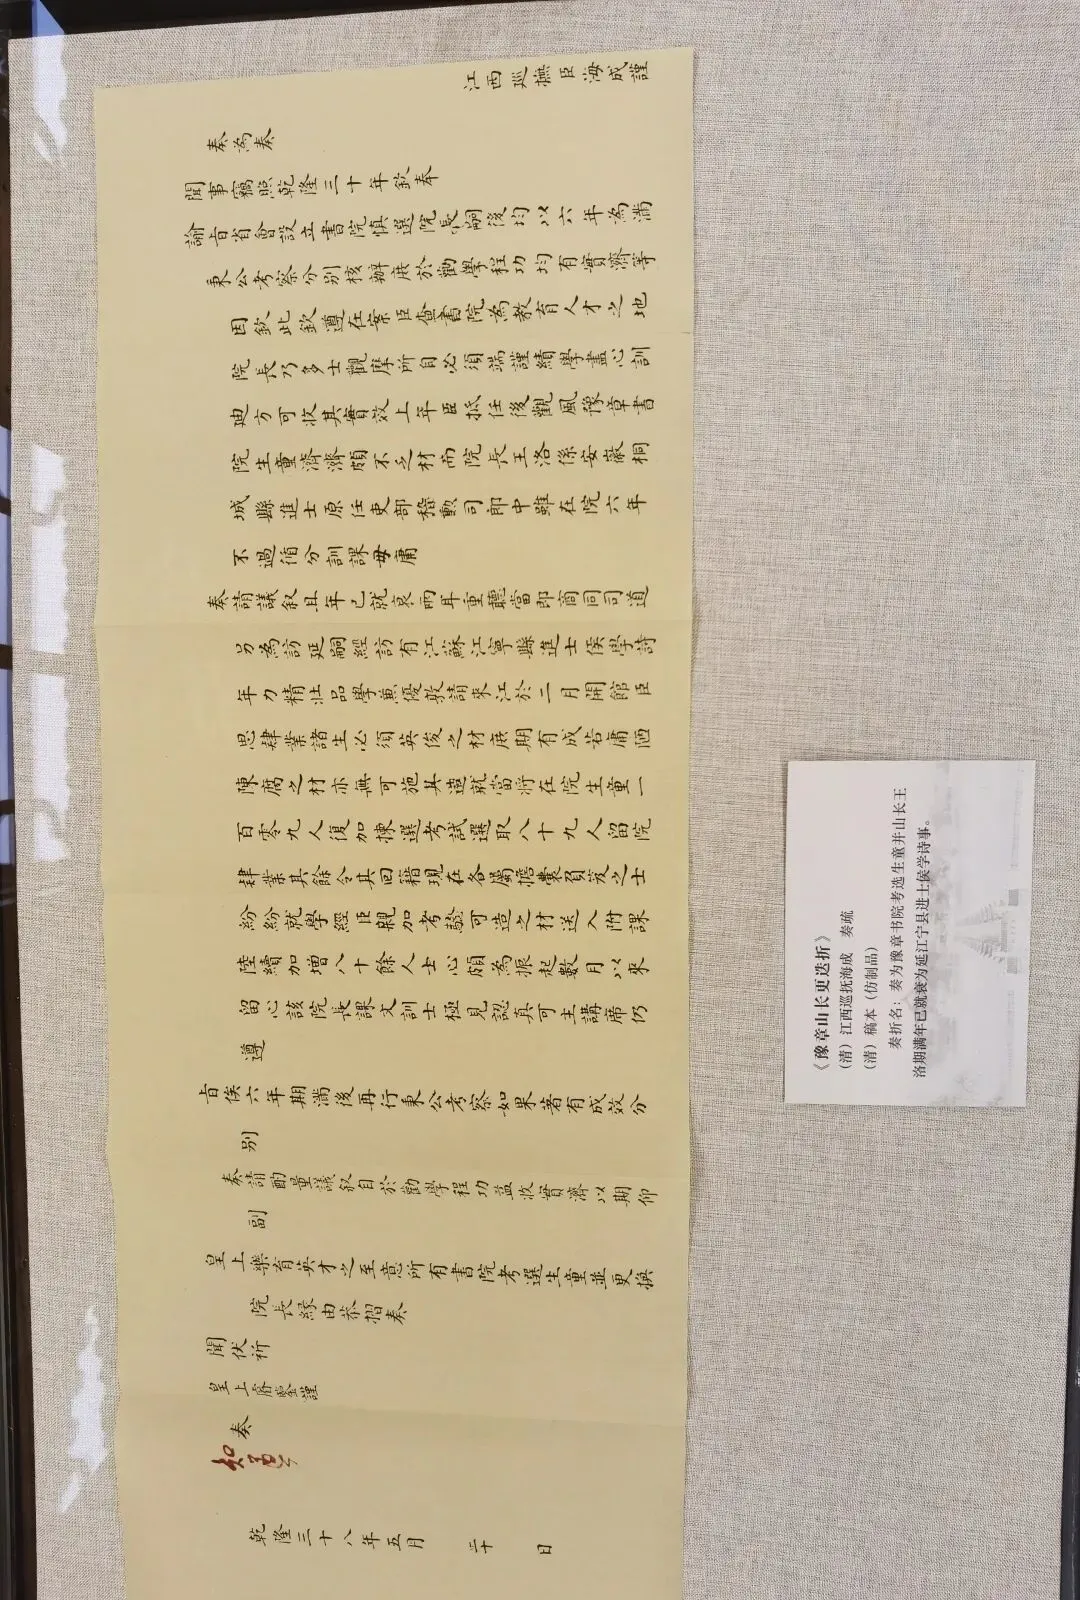 江西巡撫臣海成謹
奏為奏
聞事竊照乾隆三十年欽奉
諭旨省會設立書院慎選院長嗣後均以六年為滿
秉公考察分別核辦庶於勸學程功均有實濟等
因欽此欽遵在案臣查書院為教育人才之地
院長乃多士觀摩所自必須端謹績學盡心訓
迪方可收其實效上年臣抵任後觀風豫章書
院生童濟濟頗不乏材而院長王洛係安徽桐
城縣進士原任吏部稽勳司郎中雖在院六年
不過循分訓課毋庸
奏請議叙且年已就衰兩耳重聽當即商同司道
另為訪延嗣經訪有江蘇江寧縣進士侯學詩
年力精壯品學兼優敦請來江於二月開館臣
思肄業諸生必須英俊之材庶期有成若庸陋
陳腐之材亦無可施其造就當將在院生童一
百零九人復加揀選考試選取八十九人留院
肄業其餘令其回籍現在各屬擔囊負笈之士
紛紛就學經臣親加考驗可造之材送入附課
陸續加增八十餘人士心頗為振起數月以來
留心該院長課文訓士極見認真可主講席仍
遵
旨俟六年期滿後再行秉公考察如果著有成效分
別
奏請酌量議叙自於勸學程功益收實濟以期仰
副
皇上樂育英才之至意所有書院考選生童並更換
院長緣由恭摺奏
聞伏祈
皇上睿鑒謹
奏
知道了
乾隆三十八年五月 二十 日
《豫章山长更迭折》
（清）江西巡抚海成 奏疏
（清）稿本（仿制品）
奏折名：奏为豫章书院考选生童并山长王
洛期满年已就衰为延江宁县进士侯学诗事。